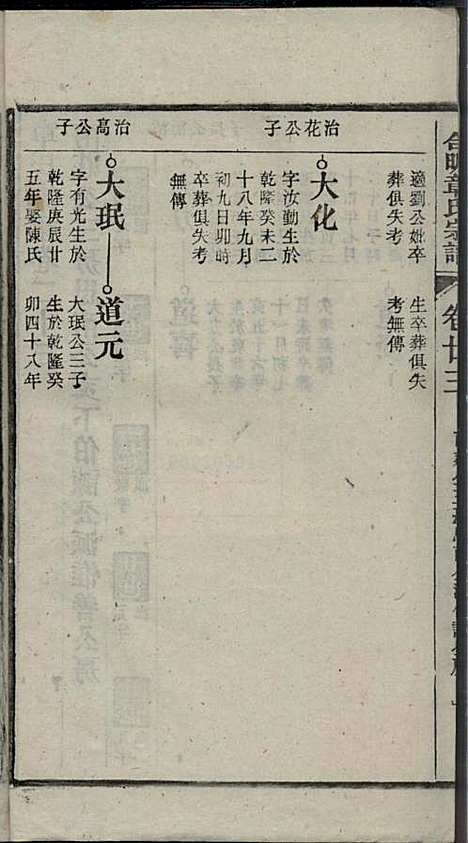 章氏宗譜
卷廿三
適劉公妣卒
葬俱失考
生卒葬俱失
考無傳
治花公子
大化
字汝勤生於
乾隆癸未二
十八年九月
初九日卯時
卒葬俱失考
無傳
治高公子
大珉
字有光生於
乾隆庚辰廿
五年娶陳氏
道元
大珉公三子
生於乾隆癸
卯四十八年